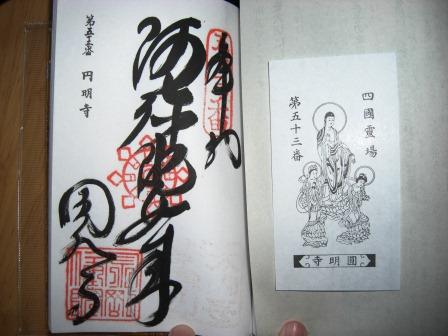 奉納
阿弥陀如来
圓明寺
第五十三番 円明寺
四國霊場
第五十三番
圓明寺